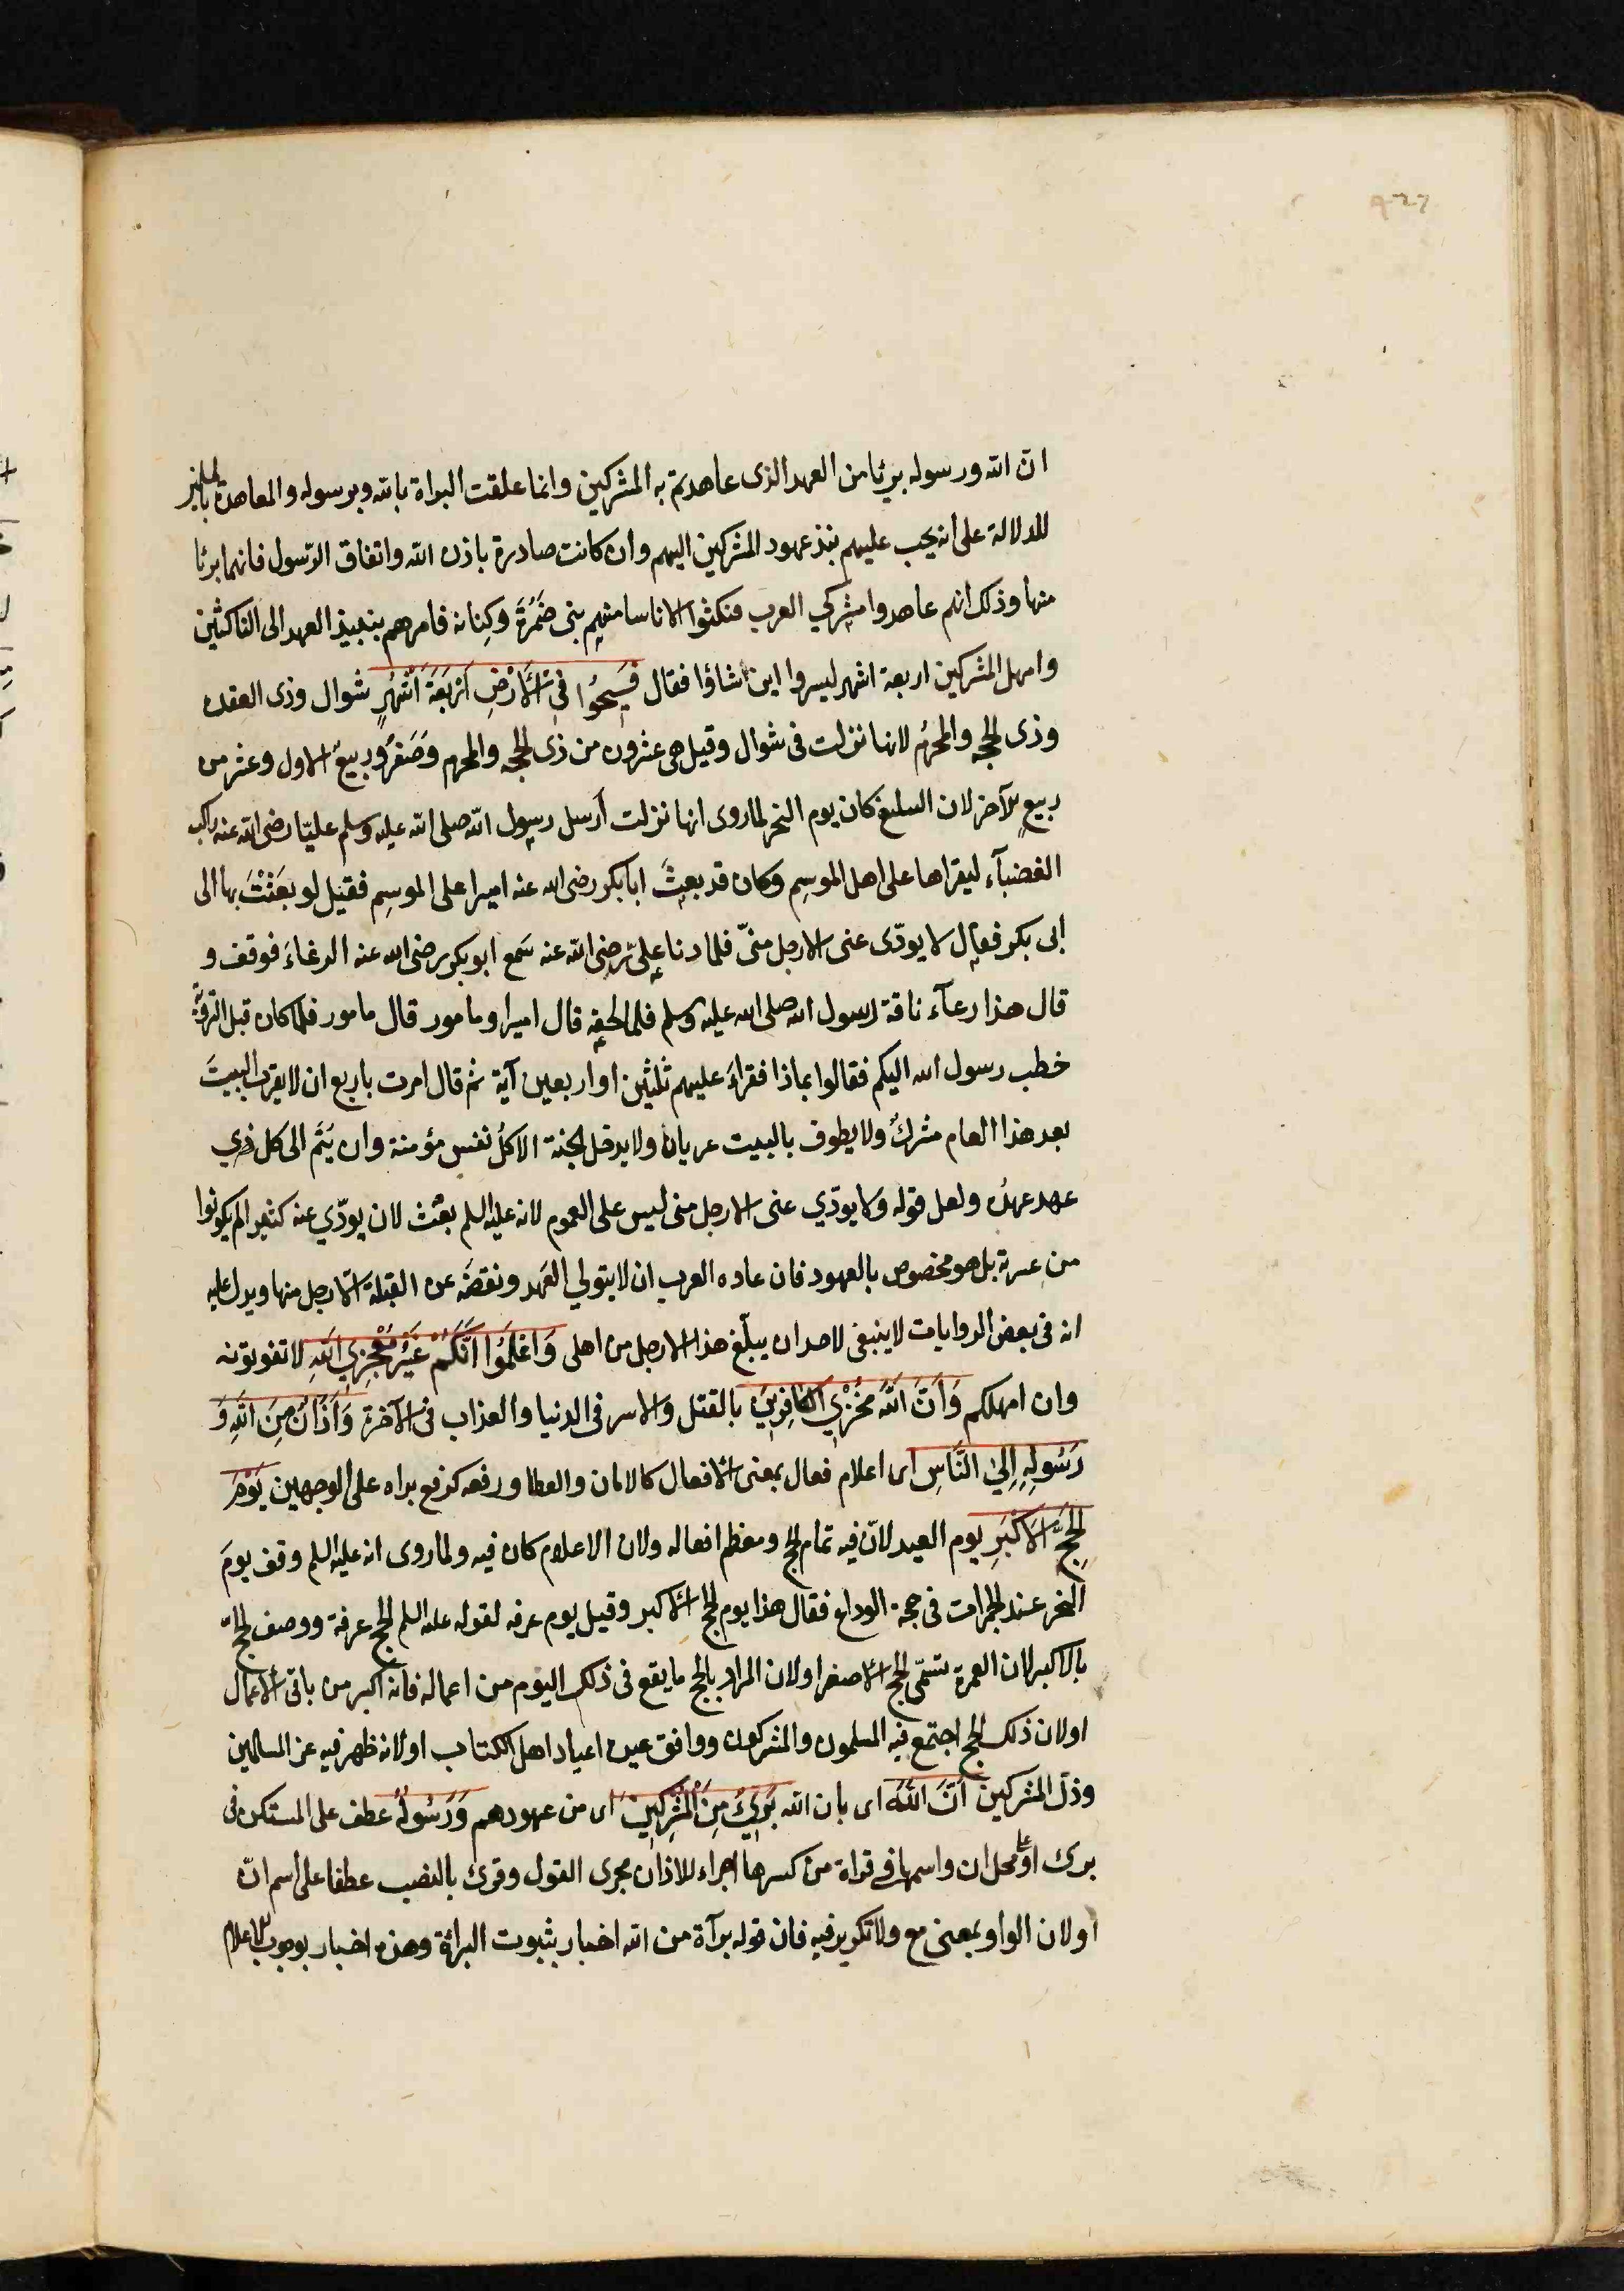 ان الله ورسوله بريئا من العهد الذى عاهدتم به المشركين وانما علقت البراة بالله وبرسوله والمعاهدة بالمسلمين
للدلالة على أنه يجب عليهم نبذ عهود المشركين اليهم وان كانت صادرة باذن الله واتفاق الرّسول فانهما برئا
منها وذلك انهم عاهدوا مشركي العرب فنكثوا الا ناسا منهم بنى ضَمُرَةَ وكِنانه فامرهم بنبيذ العهد الى الناكثين
وامهل المشركين اربعة اشهر ليسروا اين شاؤا فقال فَسِيحُوا فِي الْأَرْضِ أَرْبَعَةَ أَشْهُرٍ شوال وذى العقده
وذى الحجه والمحرمُ لانها نزلت فى شوال وقيل هى عشرون من ذى الحجه والمحرم وَصَفَرُ وربيعُ الاول وعشر من
ربيعٍ الآخر لان التبليغ كان يوم النحر لما روى انها نزلت أرسل رسول الله صلى الله عليه وسلم عليّا رضى الله عنه راكب
الغضبآء ليقراها على اهل الموسِمِ وكان قد بعث ابا بكر رضى الله عنه اميرا على الموسِم فقيل لو بعَثْتَ بها الى
ابى بكر فقال لا يودّى عنى الا رجل منىّ فلما دنا على رضى الله عنه سَمع ابو بكر رضى الله عنه الرغاءَ فوقف و
قال هذا رعآء ناقة رسول الله صلى الله عليه وسلم فلما لحقه قال اميرا ومامور قال مامور فلما كان قبل التروية
خطب رسول الله اليكم فقالوا بماذا فقراءَ عليهم ثلثين او اربعين آية ثم قال امرت باربع ان لا يقرب البيتَ
بعد هذا العام مشركُ ولا يطوف بالبيت عريان ولا يدخل الجنة الا كلُ نفس مؤمنة وان يُتم الى كل ذى
عهد عهدُه ولعل قوله ولا يودّي عنى الا رجل منى ليس على العموم لانه عليه السلم بعث لان يودّي عنه كثيرا لم يكونوا
من عترة بل هو مخصوص بالعهود فان عاده العرب ان لا يتولي العَهد ونقضَه عن القبيلة الّا رجل منها ويدل عليه
انه فى بعض الروايات لا ينبغى لاحد ان يبلّغ هذا الا رجل من اهلى وَاعْلَمُوا أَنَّكُمْ غَيْرُ مُعْجِزِي اللَّهِ لا تفوتونه
وان امهلكم وَأَنَّ اللَّهَ مُخْزِي الْكَافِرِينَ بالقتل والاسر فى الدنيا والعذاب فى الآخرة وَأَذَانٌ مِنَ اللَّهِ وَ
رَسُولِهِ إِلَى النَّاسِ اى اعلام فعال بمعنى الافعال كالامان والعطا ورفعه كرفع براه على الوجهين يَوْمَ
الْحَجِّ الْأَكْبَرِ يوم العيد لانّ فيه تمام الحج ومعظم افعاله ولان الاعلام كان فيه ولما روى انه عليه السلم وقف يومَ
النحر عند الجمرات فى حجة الوداع فقال هذا يوم الحج الأكبر وقيل يوم عرفه لقوله عليه السلم الحج عرفة ووصف الحجّ
بالاكبر لان العمرة تسّمى الحج الاصغر او لان المراد بالحج ما يقع فى ذلك اليوم من اعماله فانه اكبر من باقى الأعمال
اولان ذلك الحج اجتمع فيه المسلمون والمشركون ووافق عيده اعياد اهل الكتاب او لانه ظهر فيه عز المسلمين
وذل المشركين أَنَّ اللَّهَ اى بان الله بَرِيءٌ مِنَ الْمُشْرِكِينَ اى من عهودهم وَرَسُولُهُ عطف على المستكن فى
برى اوعلى محل ان واسمها فى قراة من كسرها اجراء للاذان مجرى القول وقرئ بالنصب عطفا على اسم انّ
او لان الواو بمعنى مع ولا تكرير فيه فان قوله برآة من الله اخبار بثبوت البراة وهذه اخبار بوجوب الاعلام